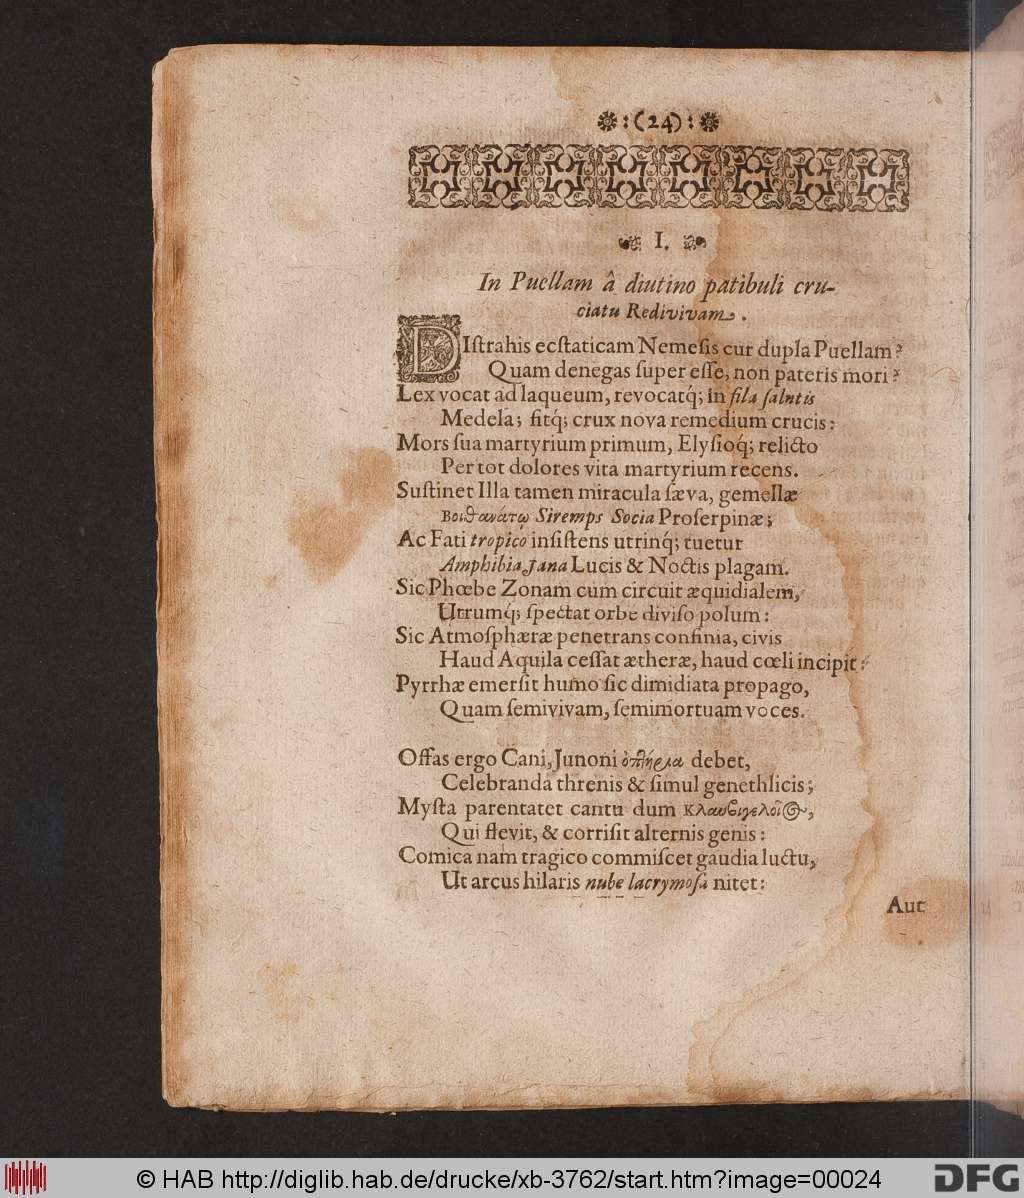 :(24):
I.
In Puellam â diutino patibuli cru-
ciatu Redivivam.
DIſtrahis ecſtaticam Nemeſis cur dupla Puellam?
Quam denegas ſuper eſſe, non pateris mori?
Lex vocat ad laqueum, revocatq́; in fila ſalutis
Medela; fitq́; crux nova remedium crucis:
Mors ſua martyrium primum, Elyſioq́; relicto
Per tot dolores vita martyrium recens.
Suſtinet Illa tamen miracula ſæva, gemellæ
Βοιθανάτῳ Siremps Socia Proſerpinæ;
Ac Fati tropico inſiſtens utrinq́; tuetur
Amphibia Jana Lucis & Noctis plagam.
Sic Phœbe Zonam cum circuit æquidialem,
Utrumq́; ſpectat orbe diviſo polum:
Sic Atmoſphæræ penetrans confinia, civis
Haud Aquila ceſſat ætheræ, haud cœli incipit:
Pyrrhæ emerſit humo ſic dimidiata propago,
Quam ſemivivam, ſemimortuam voces.
Offas ergo Cani, Junoni debet,
Celebranda threnis & ſimul genethlicis;
Myſta parentatet cantu dum
Qui flevit, & corriſit alternis genis:
Comica nam tragico commiſcet gaudia luctu,
Ut arcus hilaris nube lacrymoſa nitet:
Aut
© HAB http://diglib.hab.de/drucke/xb-3762/start.htm?image=00024
DFG